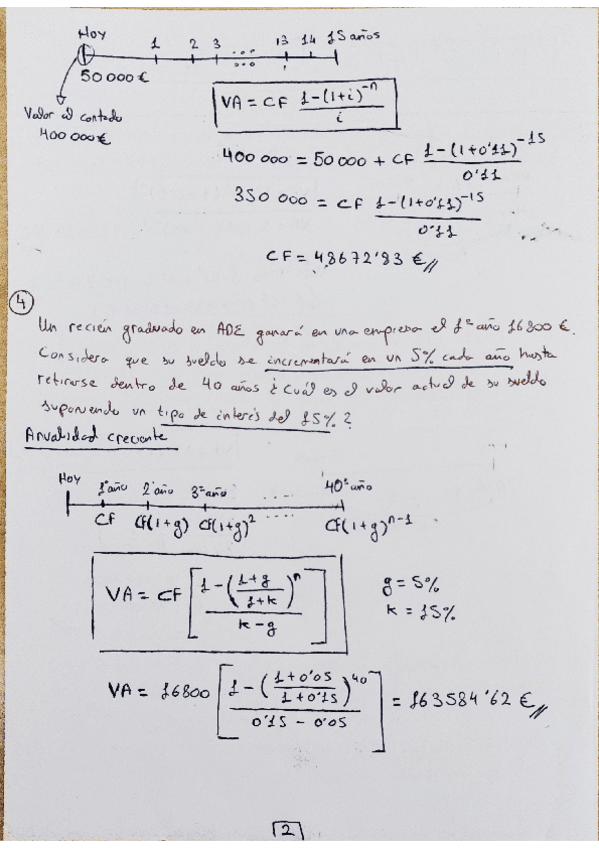 Hoy 1 2 3 ... 13 14 15 años
50 000 €
Valor al contado
400 000 €
VA = CF (1-(1+i)^-n)/i
400 000 = 50 000 + CF (1-(1+0'11)^-15)/0'11
350 000 = CF (1-(1+0'11)^-15)/0'11
CF = 48672'83 €
4
Un recién graduado en ADE ganará en una empresa el 1er año 16800 €.
Considera que su sueldo se incrementará en un 5% cada año hasta
retirarse dentro de 40 años ¿Cuál es el valor actual de su sueldo
suponiendo un tipo de interés del 15%?
Anualidad creciente
Hoy 1º año 2º año 3º año .... 40º año
CF CF(1+g) CF(1+g)^2 .... CF(1+g)^n-1
VA = CF [(1-((1+g)/(1+k))^n)/(k-g)]
g = 5%
k = 15%
VA = 16800 [(1-((1+0'05)/(1+0'15))^40)/(0'15-0'05)] = 163584'62 €
2